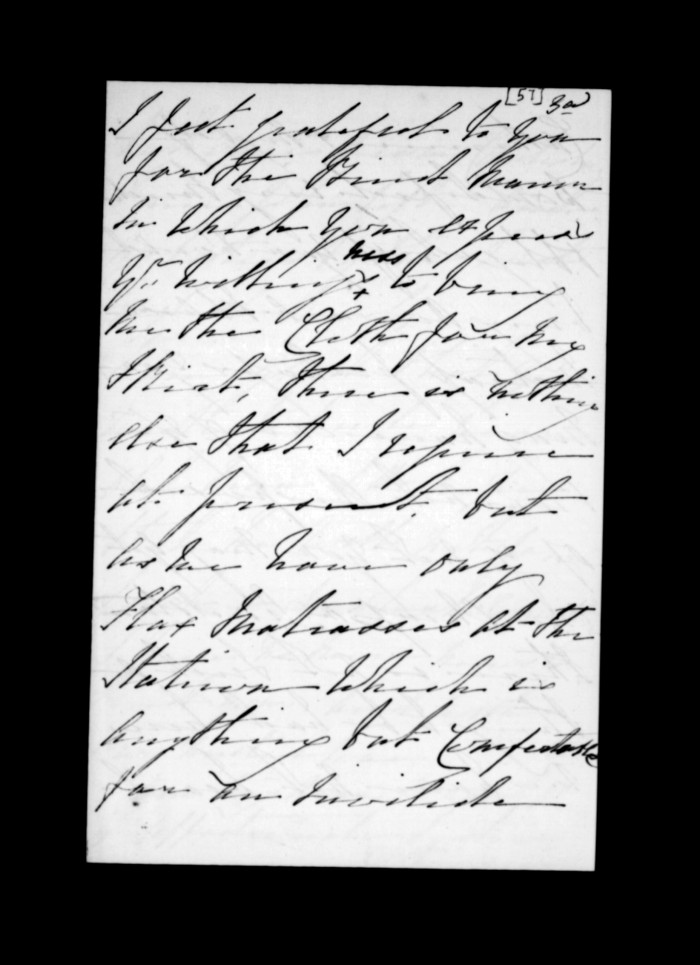 [57] 3a)
I feel grateful to you
for the Kind manner
in which you express
yr. willing ness x to bring
me the Cloth for my
Skirt, there is nothing
else that I require
at present, but
as we have only
Flax Matrasses at the
Station which is
anything but Comfortable
for an invilide